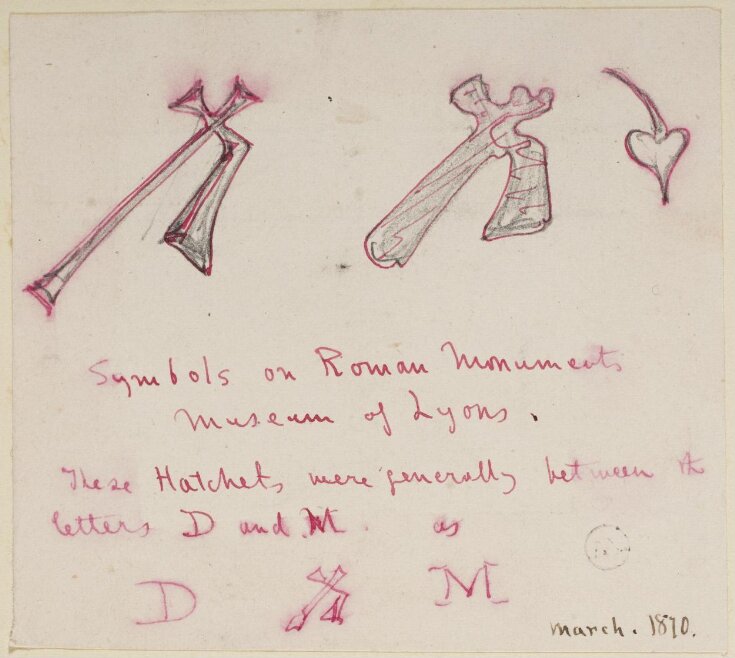 Symbols on Roman Monuments
Museum of Lyons.
These Hatchets were generally between the
letters D and M. as
D M
March. 1870.